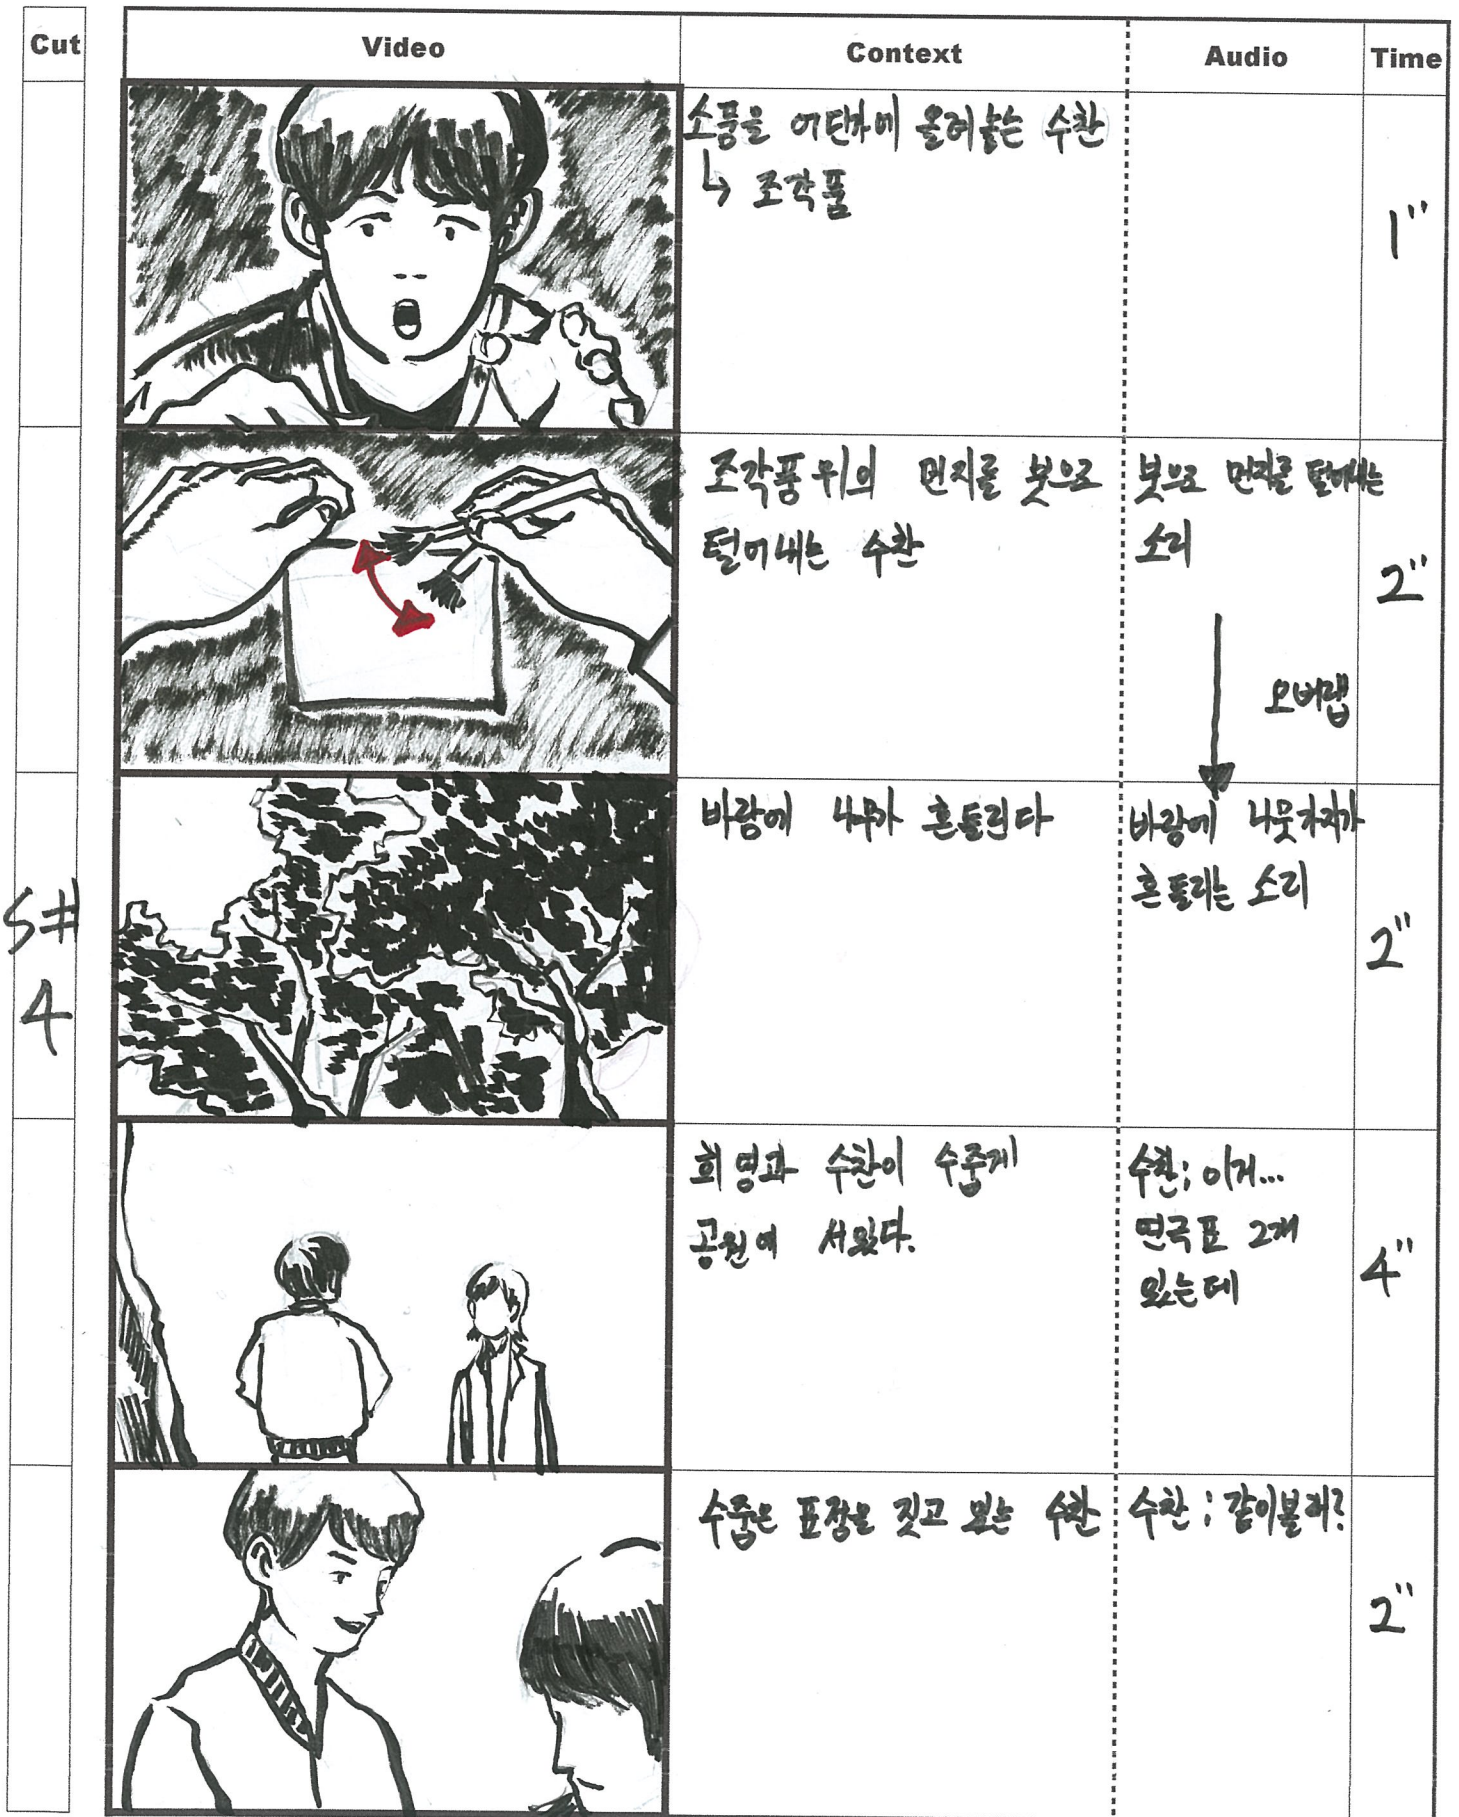 Cut Video Context Audio Time
소품을 어딘가에 올려놓는 수찬
↳ 조각품
1"
조각품 위의 먼지를 붓으로
털어내는 수찬
붓으로 먼지를 털어내는
소리
오버랩
2"
S#
4
바람에 나무가 흔들린다
바람에 나뭇가지가
흔들리는 소리
2"
희영과 수찬이 수줍게
공원에 서있다.
수찬; 이거...
연극표 2개
있는데
4"
수줍은 표정을 짓고 있는 수찬
수찬; 같이볼래?
2"